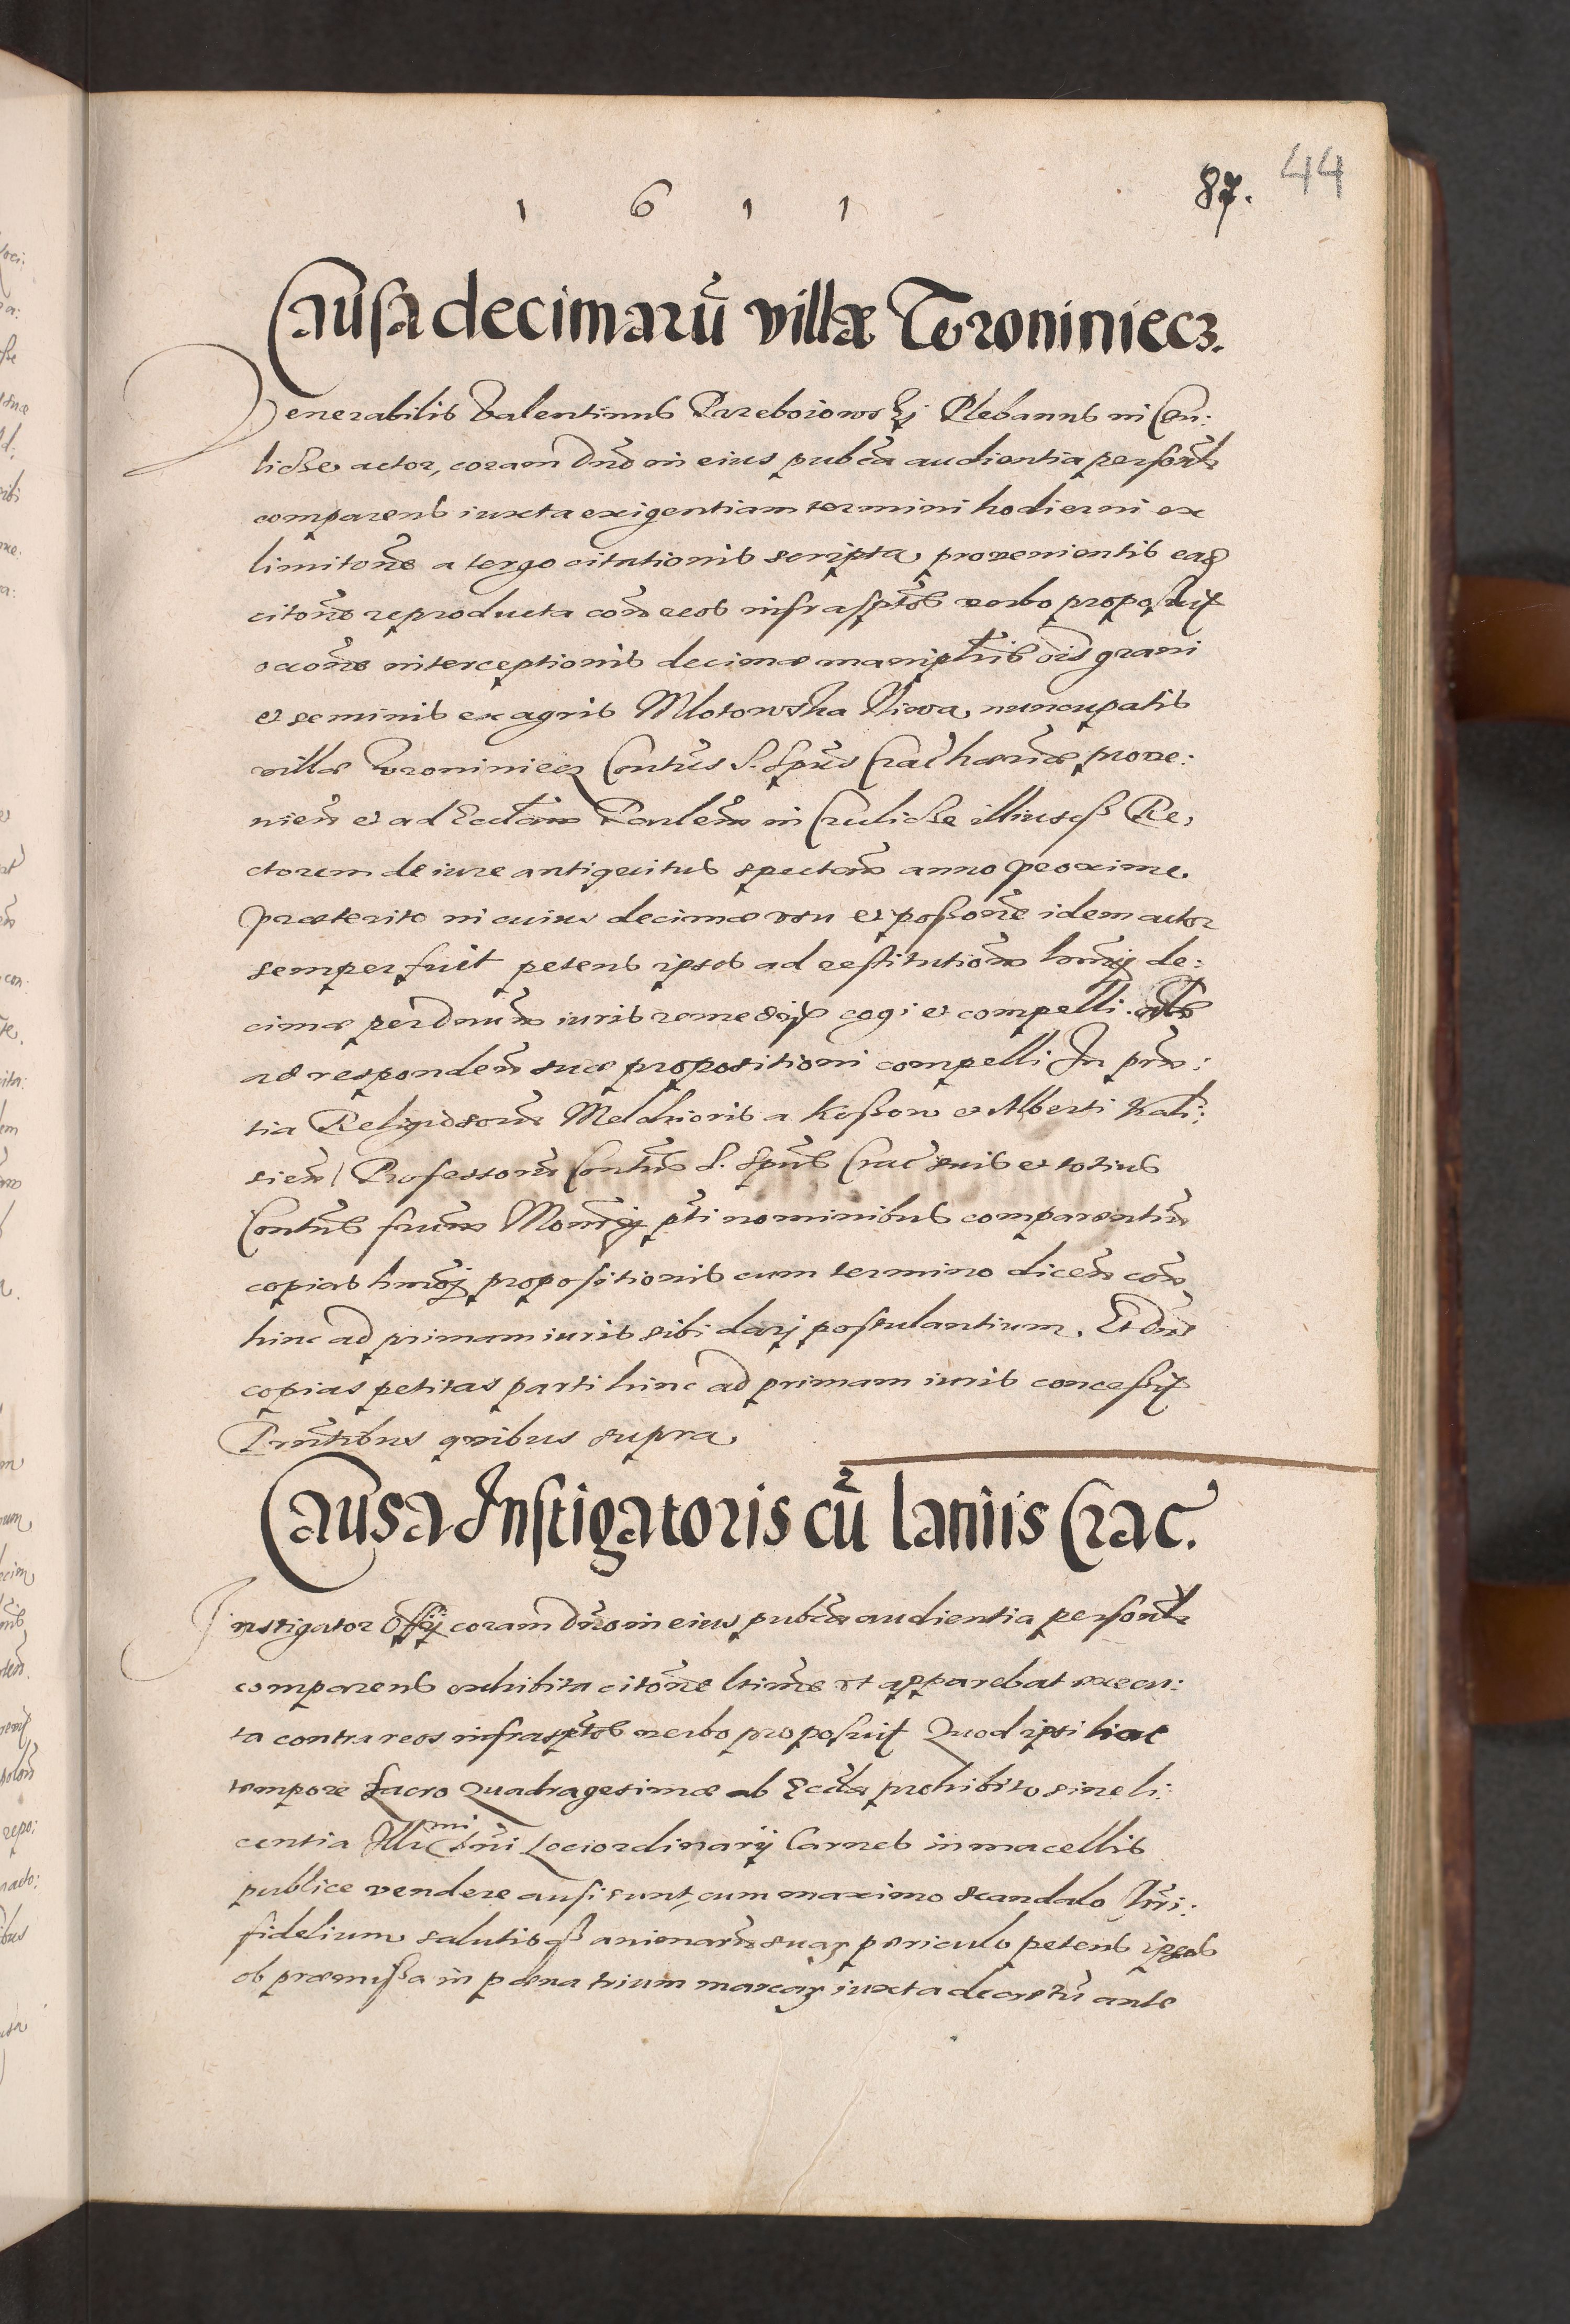 1 6 1 1
87. 44
Causa decimarū villæ Woroniniecz.
Venerabilis Valentinus Przeboiowskj Plebanus in Cru:
lickie actor, coram Dn̄o in eius pub̄ca audientia personl̄r
comparens iuxta exigentiam termini hodierni ex
limitōne a tergo citationis scripta provenientis ead
citōne reproducta con̄ reos infrasp̄tos verbo proposuit
occōne interceptionis decimæ manip̄lris oīs grani
et seminis ex agris Mlotowska Niwa nuncupatis
villæ Woroniniecz Conv̄tus S. Sp̄us Crac̄ hæredæ prove:
nien̄ et ad Eccl̄am Parole͞m in Crulickie illiusq₃ Re,
ctorem de iure antiquitus spectan̄ anno proxime
præterito in cuius decimæ usu et possōne idem actor
semper fuit petens ipsos ad restitutiōnem hm̄oi de:
cimæ per Dn̄um iuris remedijs cogi et compelli.
ad responden̄ suæ propositioni compelli In præn̄:
tia Religiosorū Melchioris a Kosson et Alberti Kali:
sien̄ Professorū Conv̄tus S. Sp̄us Crac̄ suis et totius
Conv̄tus sruūm Mon̄rij p̄ti nominibus comparentiū
copias hm̄oj propositionis cum termino dicen̄ con̄
hinc ad primam iuris sibi darj postulantium. Et Dn̄s
copias petitas parti hinc ad primam iuris concessit
Prn̄tibus quibus supra
Causa Instigatoris cū laniis Crac̄.
Instigator Offij coram Dn̄o in eius pub̄ca audientia personl̄r
comparens exhibita citōne ltīme ut apparebat execu:
ta contra reos infrasp̄tos verbo proposuit Quod ipsi hoc
tempore sacro Quadragesimæ ab Eccl̄a prohibito sine li:
centia Illr̄mi Dn̄i Loci ordinarij Carnes in macellis
publice vendere ausi sunt, cum maximo scandalo Chr̄i:
fidelium salutisq₃ animarū suaꝝ periculo petens ipsos
ob præmissa in pœna trium marcaꝝ iuxta decretū ante